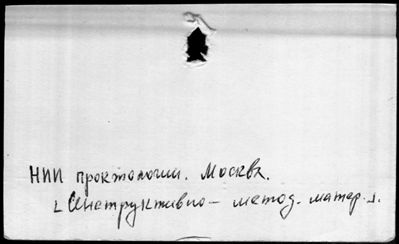 НИИ проктологии. Москва.
[Инструктивно - метод. матер.].